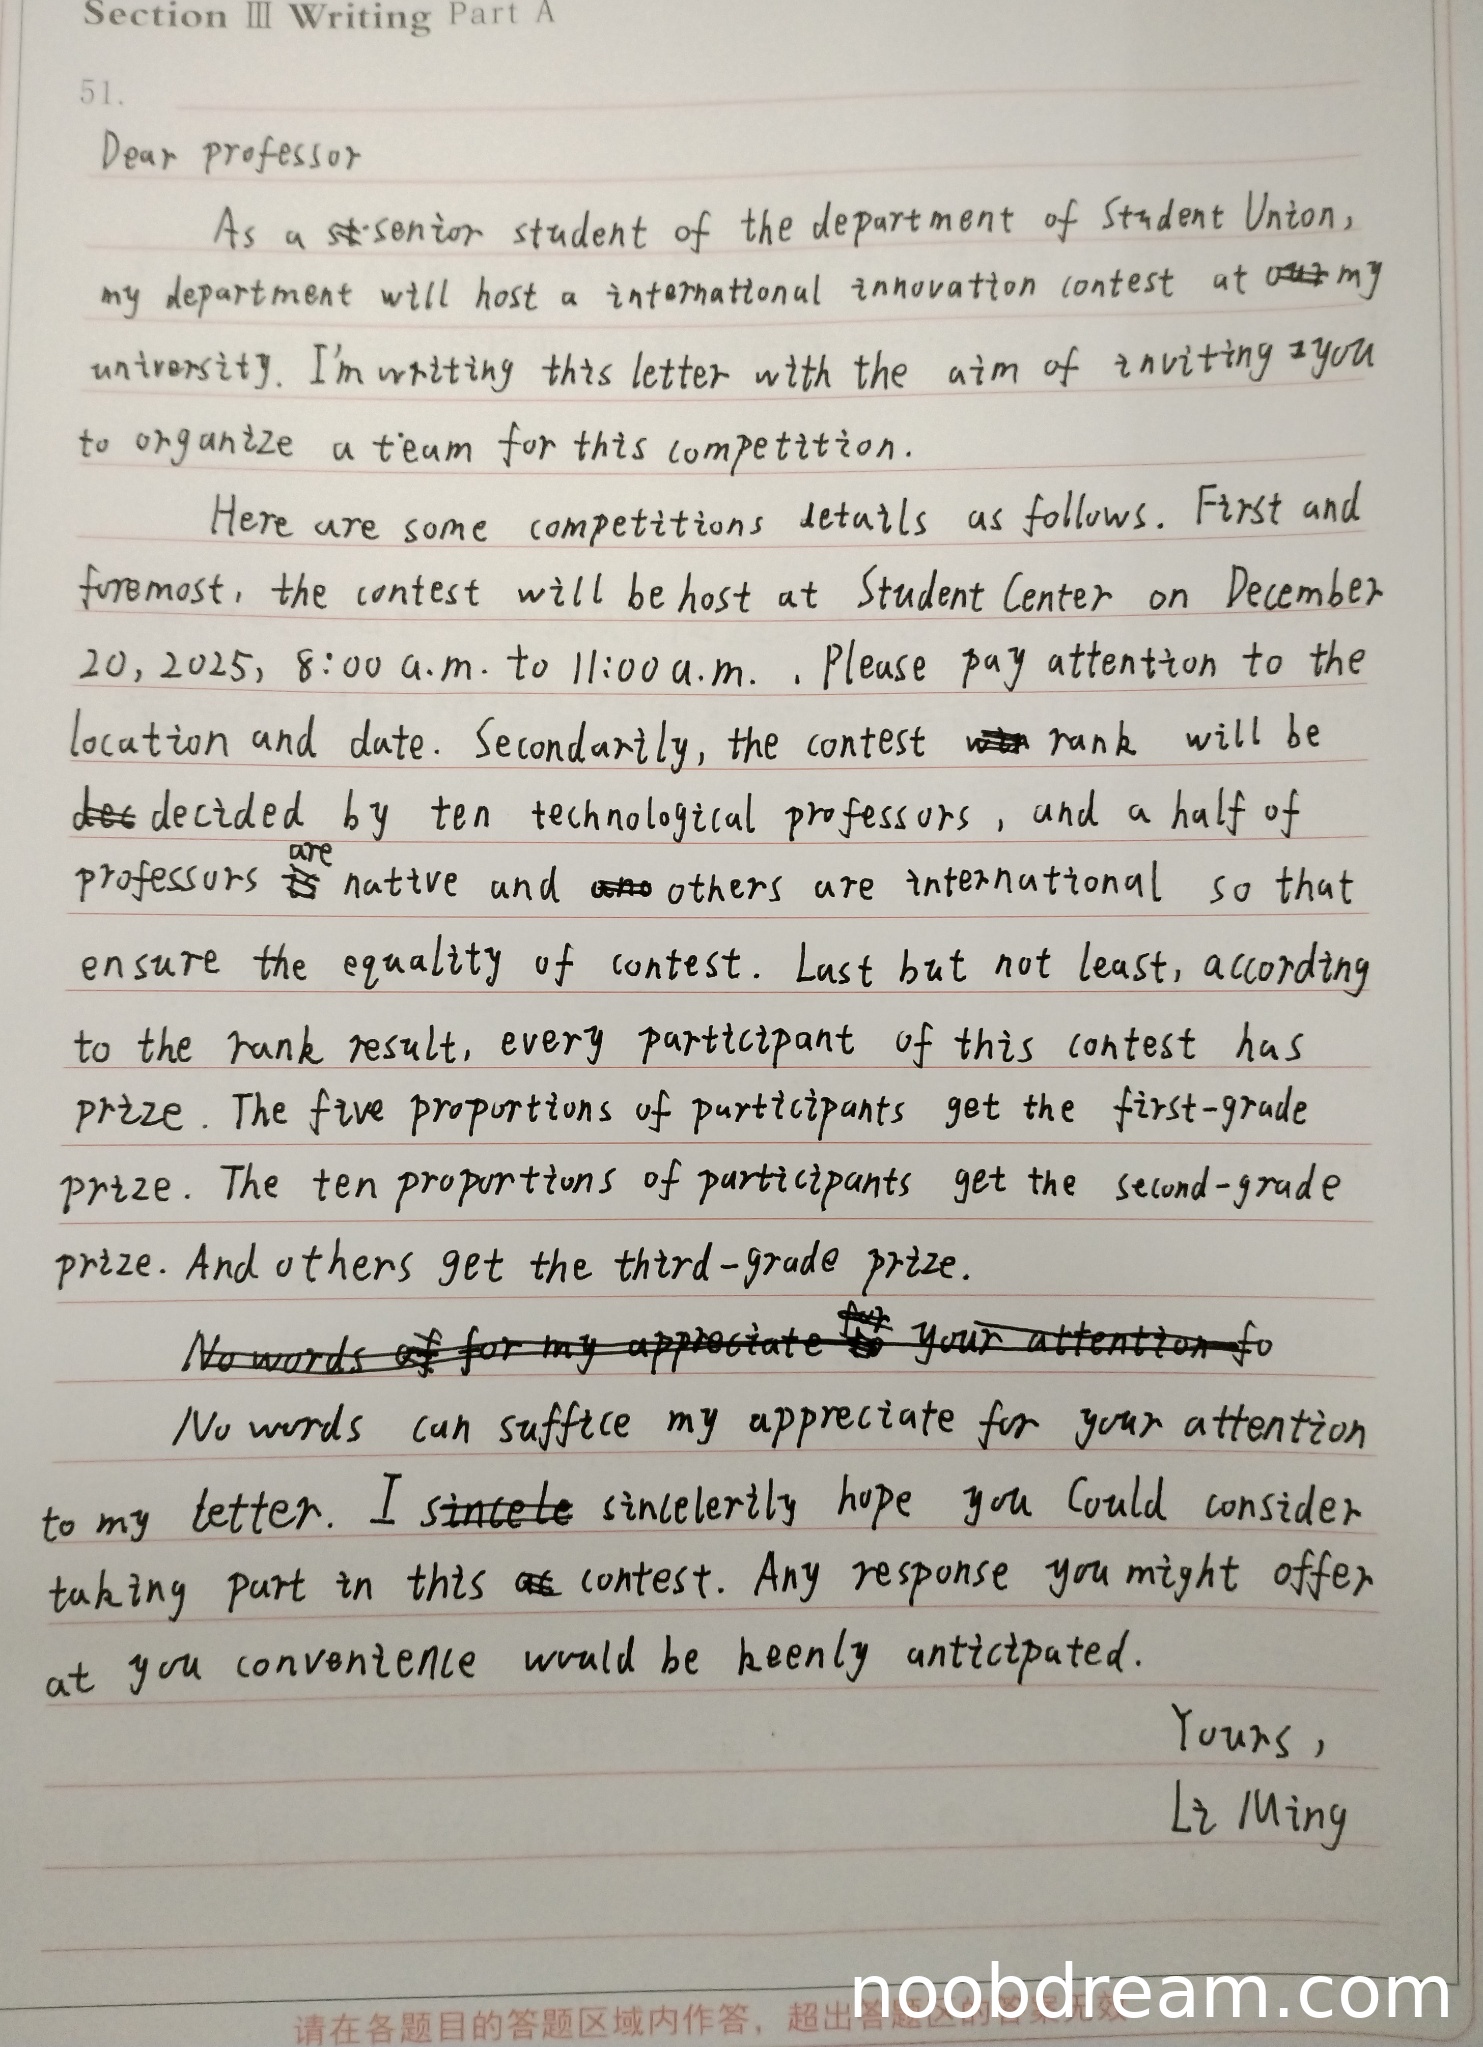 Section Ⅲ Writing Part A
51.
Dear professor
As a senior student of the department of Student Union,
my department will host a international innovation contest at my
university. I'm writing this letter with the aim of inviting you
to organize a team for this competition.
Here are some competitions details as follows. First and
foremost, the contest will be host at Student Center on December
20, 2025, 8:00 a.m. to 11:00 a.m. . Please pay attention to the
location and date. Secondarily, the contest rank will be
decided by ten technological professors, and a half of
professors are native and others are international so that
ensure the equality of contest. Last but not least, according
to the rank result, every participant of this contest has
prize. The five proportions of participants get the first-grade
prize. The ten proportions of participants get the second-grade
prize. And others get the third-grade prize.
No words for my appreciate your attention fo
No words can suffice my appreciate for your attention
to my letter. I sincelerily hope you Could consider
taking part in this contest. Any response you might offer
at you convenience would be keenly anticipated.
Yours,
Li Ming
noobdream.com
请在各题目的答题区域内作答，超出答题区的答案无效